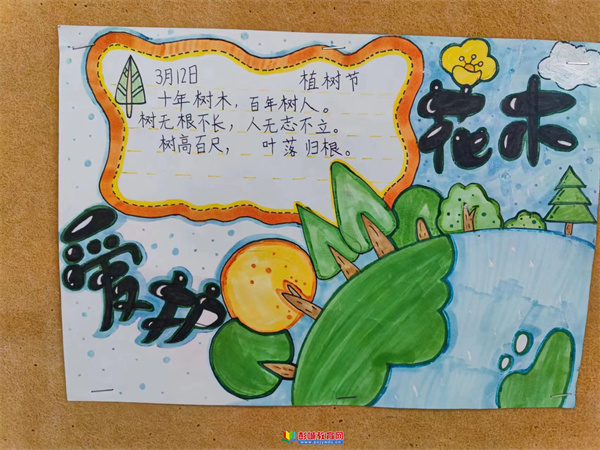 3月12日 植树节
十年树木，百年树人。
树无根不长，人无志不立。
树高百尺， 叶落归根。
爱护
花木
彭城教育网